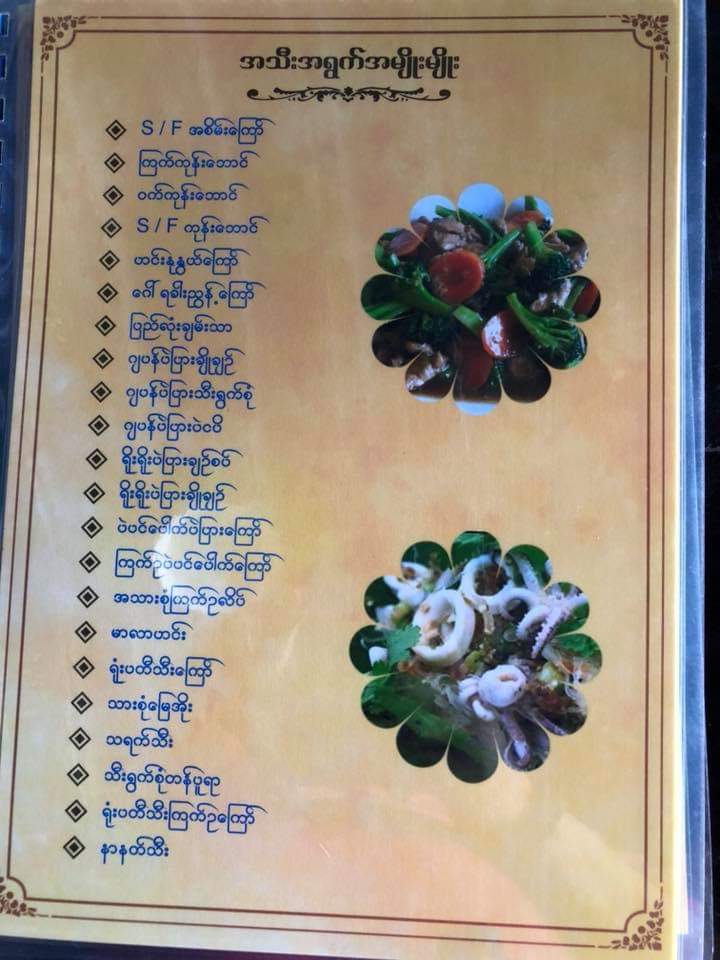 အသီးအရွက်အမျိုးမျိုး
S / F အစိမ်းကြော်
ကြက်ကုန်းဘောင်
ဝက်ကုန်းဘောင်
S / F ကုန်းဘောင်
ဟင်းနုနွယ်ကြော်
ဂေါ်ရခါးညွှန့်ကြော်
ပြည်လုံးချမ်းသာ
ဂျပန်ပဲပြားချိုချဉ်
ဂျပန်ပဲပြားသီးရွက်စုံ
ဂျပန်ပဲပြားပဲငပိ
ရိုးရိုးပဲပြားချဉ်စပ်
ရိုးရိုးပဲပြားချိုချဉ်
ပဲပင်ပေါက်ပဲပြားကြော်
ကြက်ဥပဲပင်ပေါက်ကြော်
အသားစုံကြက်ဥလိပ်
မာလာဟင်း
ရုံးပတီသီးကြော်
သားစုံမြေအိုး
သရက်သီး
သီးရွက်စုံတန်ပူရာ
ရုံးပတီသီးကြက်ဥကြော်
နာနတ်သီး